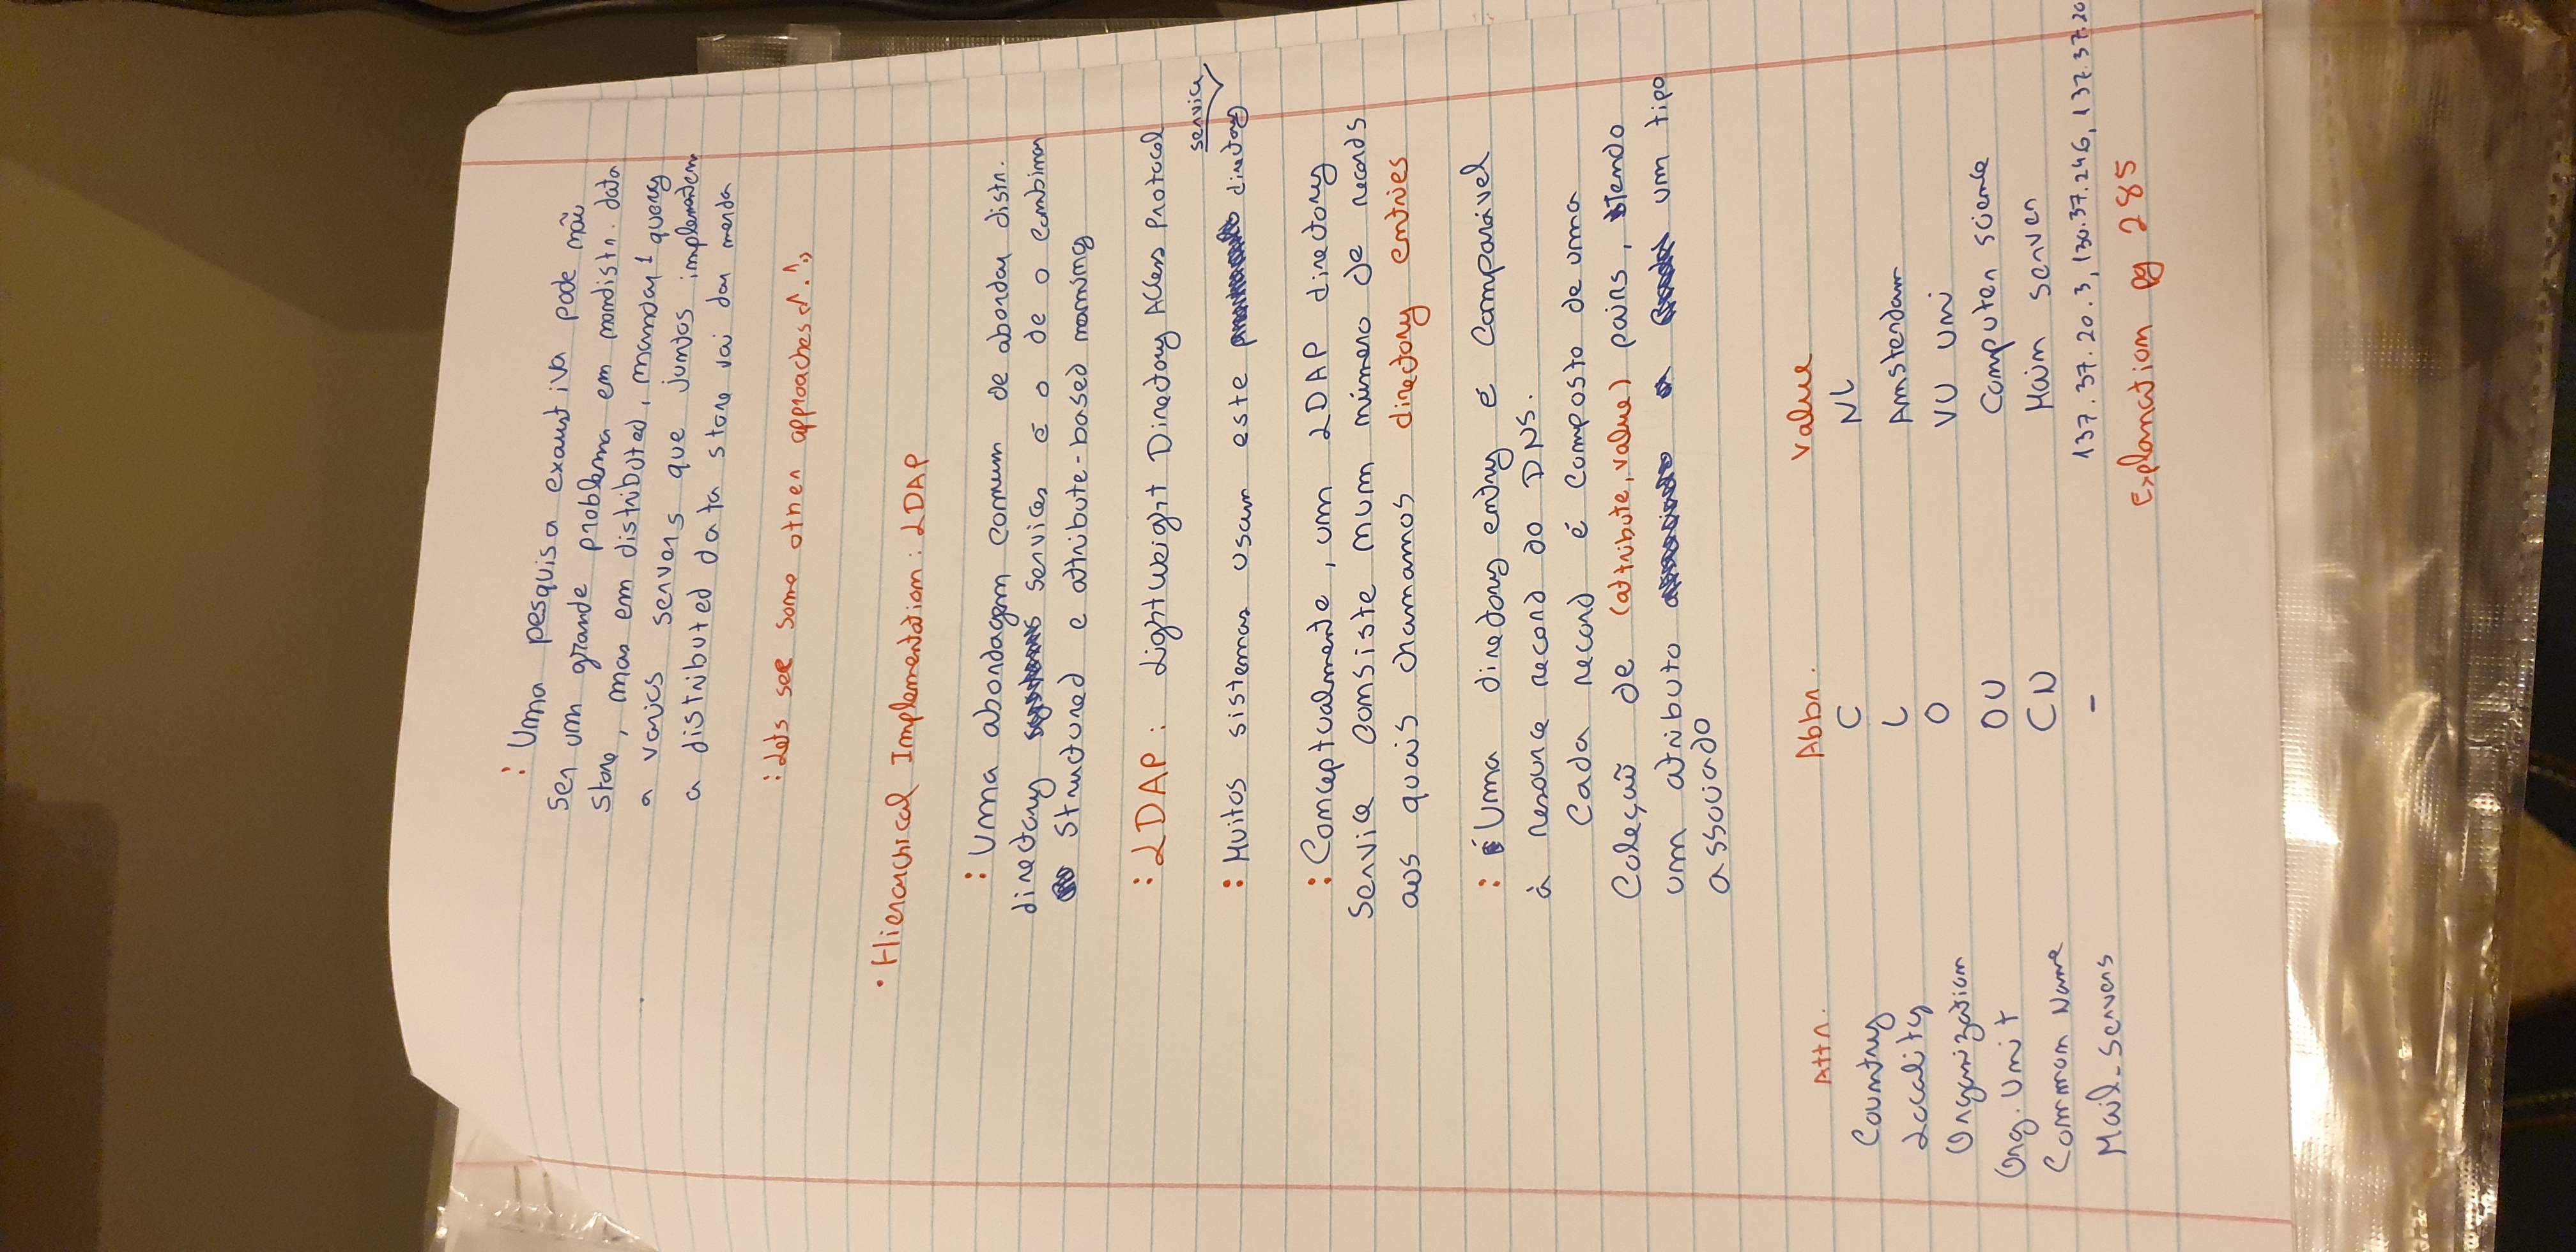 : Uma pesquisa exaustiva pode não
ser um grande problema em nondistr. data
store, mas em distributed, mandar 1 query
a varios servers que juntos implementem
a distributed data store vai dar merda
: Lets see some other approaches
• Hierarchical Implementation: LDAP
: Uma abordagem comum de abordar distr.
directory services é o de o combinar
structured e attribute-based naming
: LDAP: Lightweight Directory Access Protocol
service
: Muitos sistemas usam este directory
: Conceptualmente, um LDAP directory
service consiste num número de records
aos quais chamamos directory entries
: Uma directory entry é comparável
à resource record do DNS.
Cada record é composto de uma
coleção de (attribute, value) pairs, tendo
um atributo um tipo
associado
Attr. Abbr. Value
Country C NL
Locality L Amsterdam
Organization O VU Uni
Org. Unit OU Computer science
Common Name CN Main server
Mail-servers - 137.37.20.3, 130.37.24.6, 137.37.20
Explanation pg 285